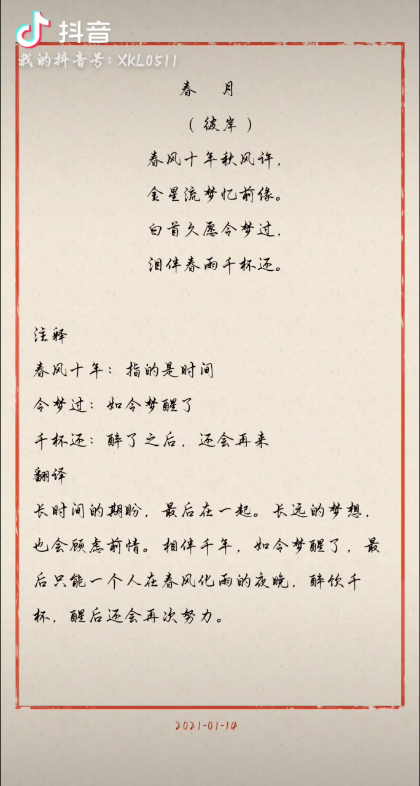 抖音
我的抖音号:XKL0511
春 月
(彼岸)
春风十年秋风许,
金星流梦忆前缘。
白首久愿今梦过,
泪伴春雨千杯还。
注释
春风十年:指的是时间
今梦过:如今梦醒了
千杯还:醉了之后,还会再来
翻译
长时间的期盼,最后在一起。长远的梦想,
也会顾虑前情。相伴千年,如今梦醒了,最
后只能一个人在春风化雨的夜晚,醉饮千
杯,醒后还会再次努力。
2021-01-14